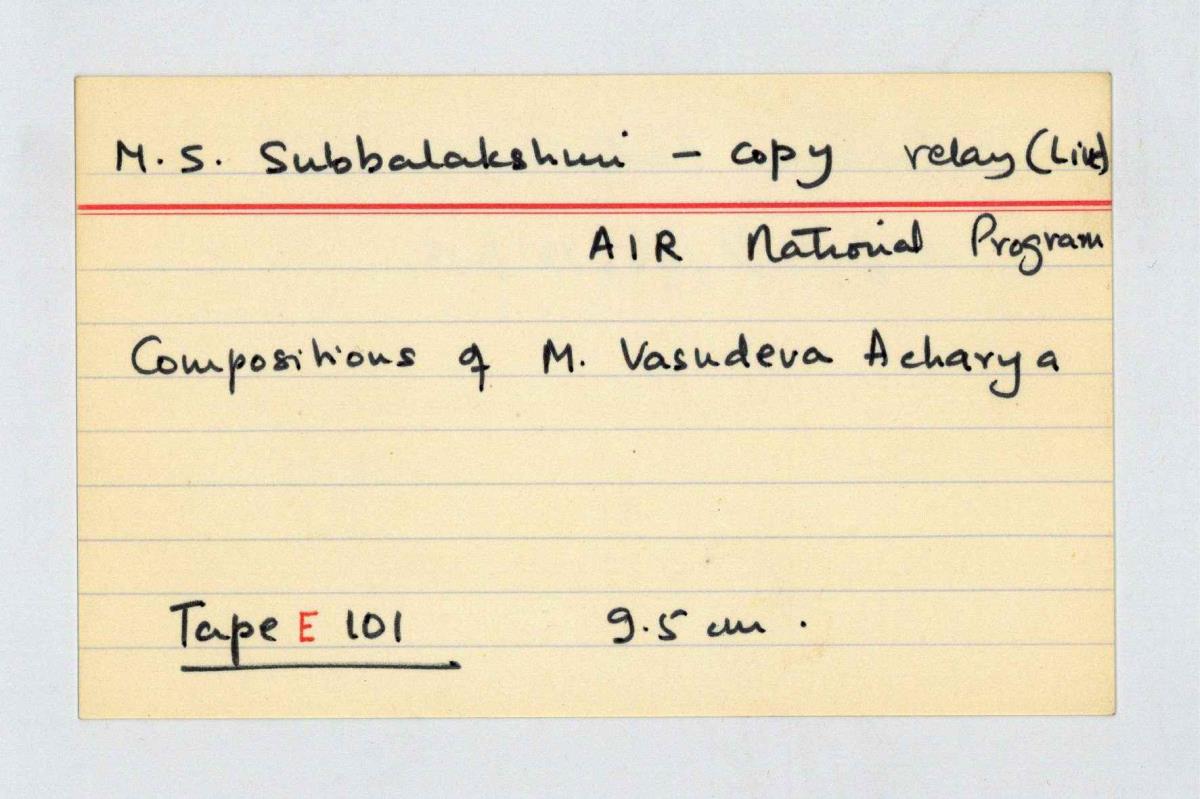 M.S. Subbalakshmi - copy relay (Live)
AIR National Program
Compositions of M. Vasudeva Acharya
Tape E 101 9.5 cm.